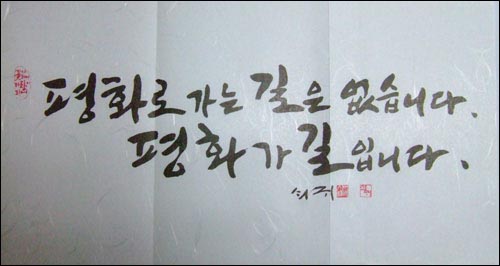 평화로 가는 길은 없습니다.
평화가 길입니다.